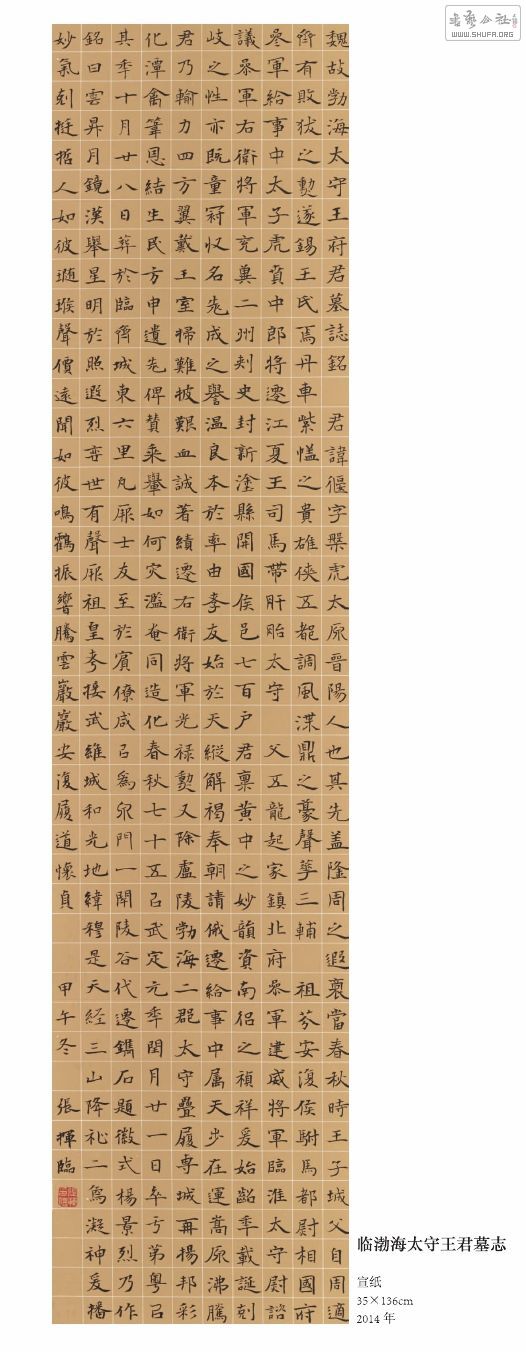 WWW.SHUFA.ORG
魏故勃海太守王府君墓誌銘 君諱偃字槃虎太原晉陽人也其先盖隆周之遐裔當春秋時王子城父自周適
齊有敗狄之勳遂錫王氏焉丹車紫愠之貴雄俠五都調風渫鼎之豪聲華三輔 祖芬安復侯駙馬都尉相國府
叅軍給事中太子虎賁中郎將遷江夏王司馬帶盱眙太守 父五龍起家鎮北府叅軍建威將軍臨淮太守尉諮
議叅軍右衛將軍兖冀二州刾史封新塗縣開國侯邑七百戶 君禀黄中之妙韻資南侣之禎祥爰始齠年載誕剋
岐之性亦既童冠収名先成之譽温良本於率由孝友始於天縱解褐奉朝請俄遷給事中属天步在運嵩原沸騰
君乃輸力四方翼戴王室掃難披艱血誠著績遷右衛將軍光禄勳又除盧陵勃海二郡太守疊履専城再揚邦彩
化潭禽葦恩結生民方申遺先俾賛乘轝如何灾濫奄同造化春秋七十五以武定元年閏月廿一日卒亏第粤以
其年十月廿八日葬於臨齊城東六里凡厥士友至於賓僚咸以為泉門一閇陵谷代遷鐫石題徽式楊景烈乃作
銘曰雲昇月鏡漢舉星明於照遐烈弈世有聲厥祖皇考接武維城和光地緯穆是天経三山降礼二為凝神爰播
妙氣剋挺哲人如彼堠聲價遠聞如彼鳴鶴振響騰雲巖巖安復履道懷貞 甲午冬 張揮臨
临渤海太守王君墓志
宣纸
35×136cm
2014 年